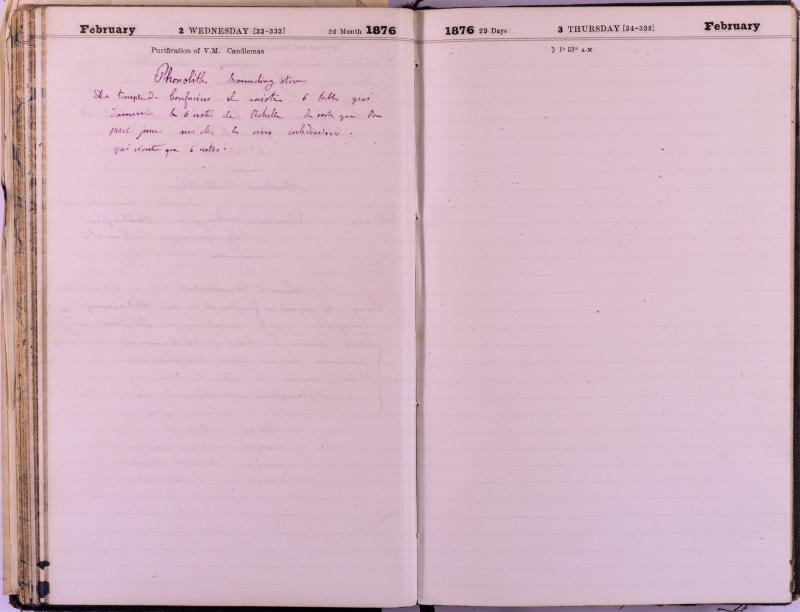 February 2 WEDNESDAY [33-333] 2d Month 1876
Purification of V.M. Candlemas
Phonolith Sounding stone
temple de Confucius il existe 6 tables qui
donnent les 6 notes de l'échelle de sorte que l'on
peut jouer les airs
qui n'ont que 6 notes.
1876 29 Days 3 THURSDAY [34-332] February
☽ 1h 53m A.M.